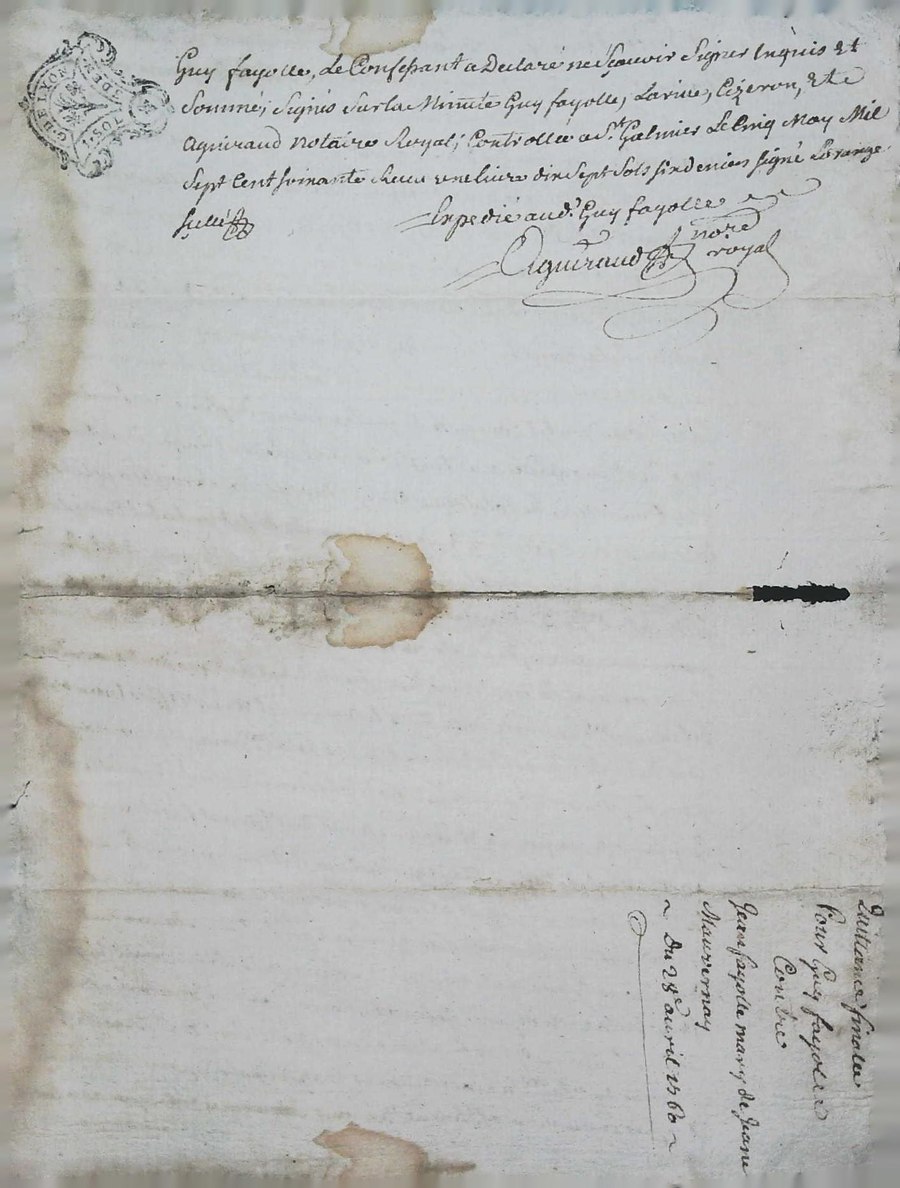 Guy fayolle, le Confessant a Declaré ne Sçavoir Signer Enquis Et
Sommé; Signés Sur la Minutte Guy fayolle, Larive, Cizeron, Et
Aguiraud Notaire Royal; Controllée a St. Galmier Le Cinq May Mil
Sept Cent soixante Receu une livre dix Sept Sols six deniers signé Lorange
Expedié aud. Guy fayolle
Aguiraud nore
royal
G DE LYON
Quittance finalle
Pour Guy fayolle
Contre
Jean fayolle mary de Jeane
Mauvernay
Du 28e avril 1760